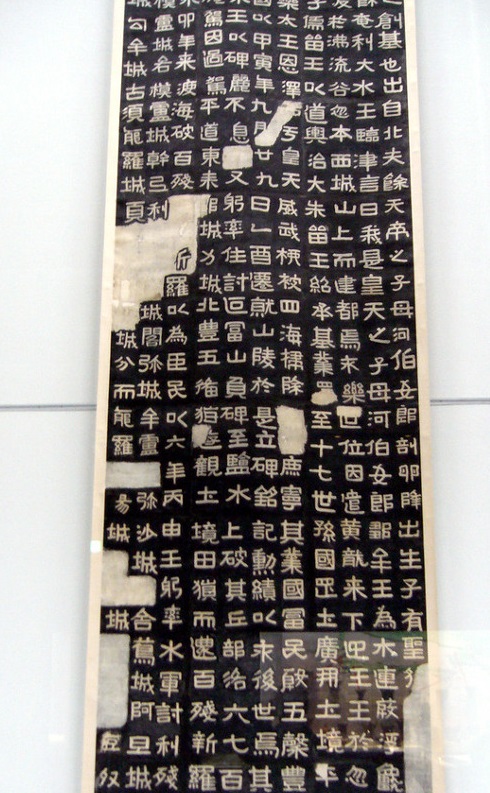 之創基也出自北夫餘天帝之子母河伯女郎剖卵降出生子有聖
餘奄利大水王臨津言曰我是皇天之子母河伯女郎鄒牟王為木連葭浮龜
於沸流谷忽本西城山上而建都焉不樂世位因遣黃龍來下迎王王於忽
子儒留王以道興治大朱留王紹承基業遝至十七世孫國罡上廣開土境平
樂太王恩澤于皇天威武振被四海掃除庶寧其業國富民殷五穀豐
以甲寅年九月廿九日乙酉遷就山陵於是立碑銘記勳績以示後世焉其
王以碑麗不息又躬率住討叵富山負碑至鹽水上破其丘部洛六七百
駕因過駕平道東來城力城北豐五俻猶遊觀土境田獵而還百殘新羅
來卯年來渡海破百殘斤羅以為臣民以六年丙申王躬率水軍討利殘
模盧城各模盧城幹弓利城閣弥城牟盧弥沙城舍蔦城阿旦城
城句牟城古須能羅城頁城分而能羅昜城城奴